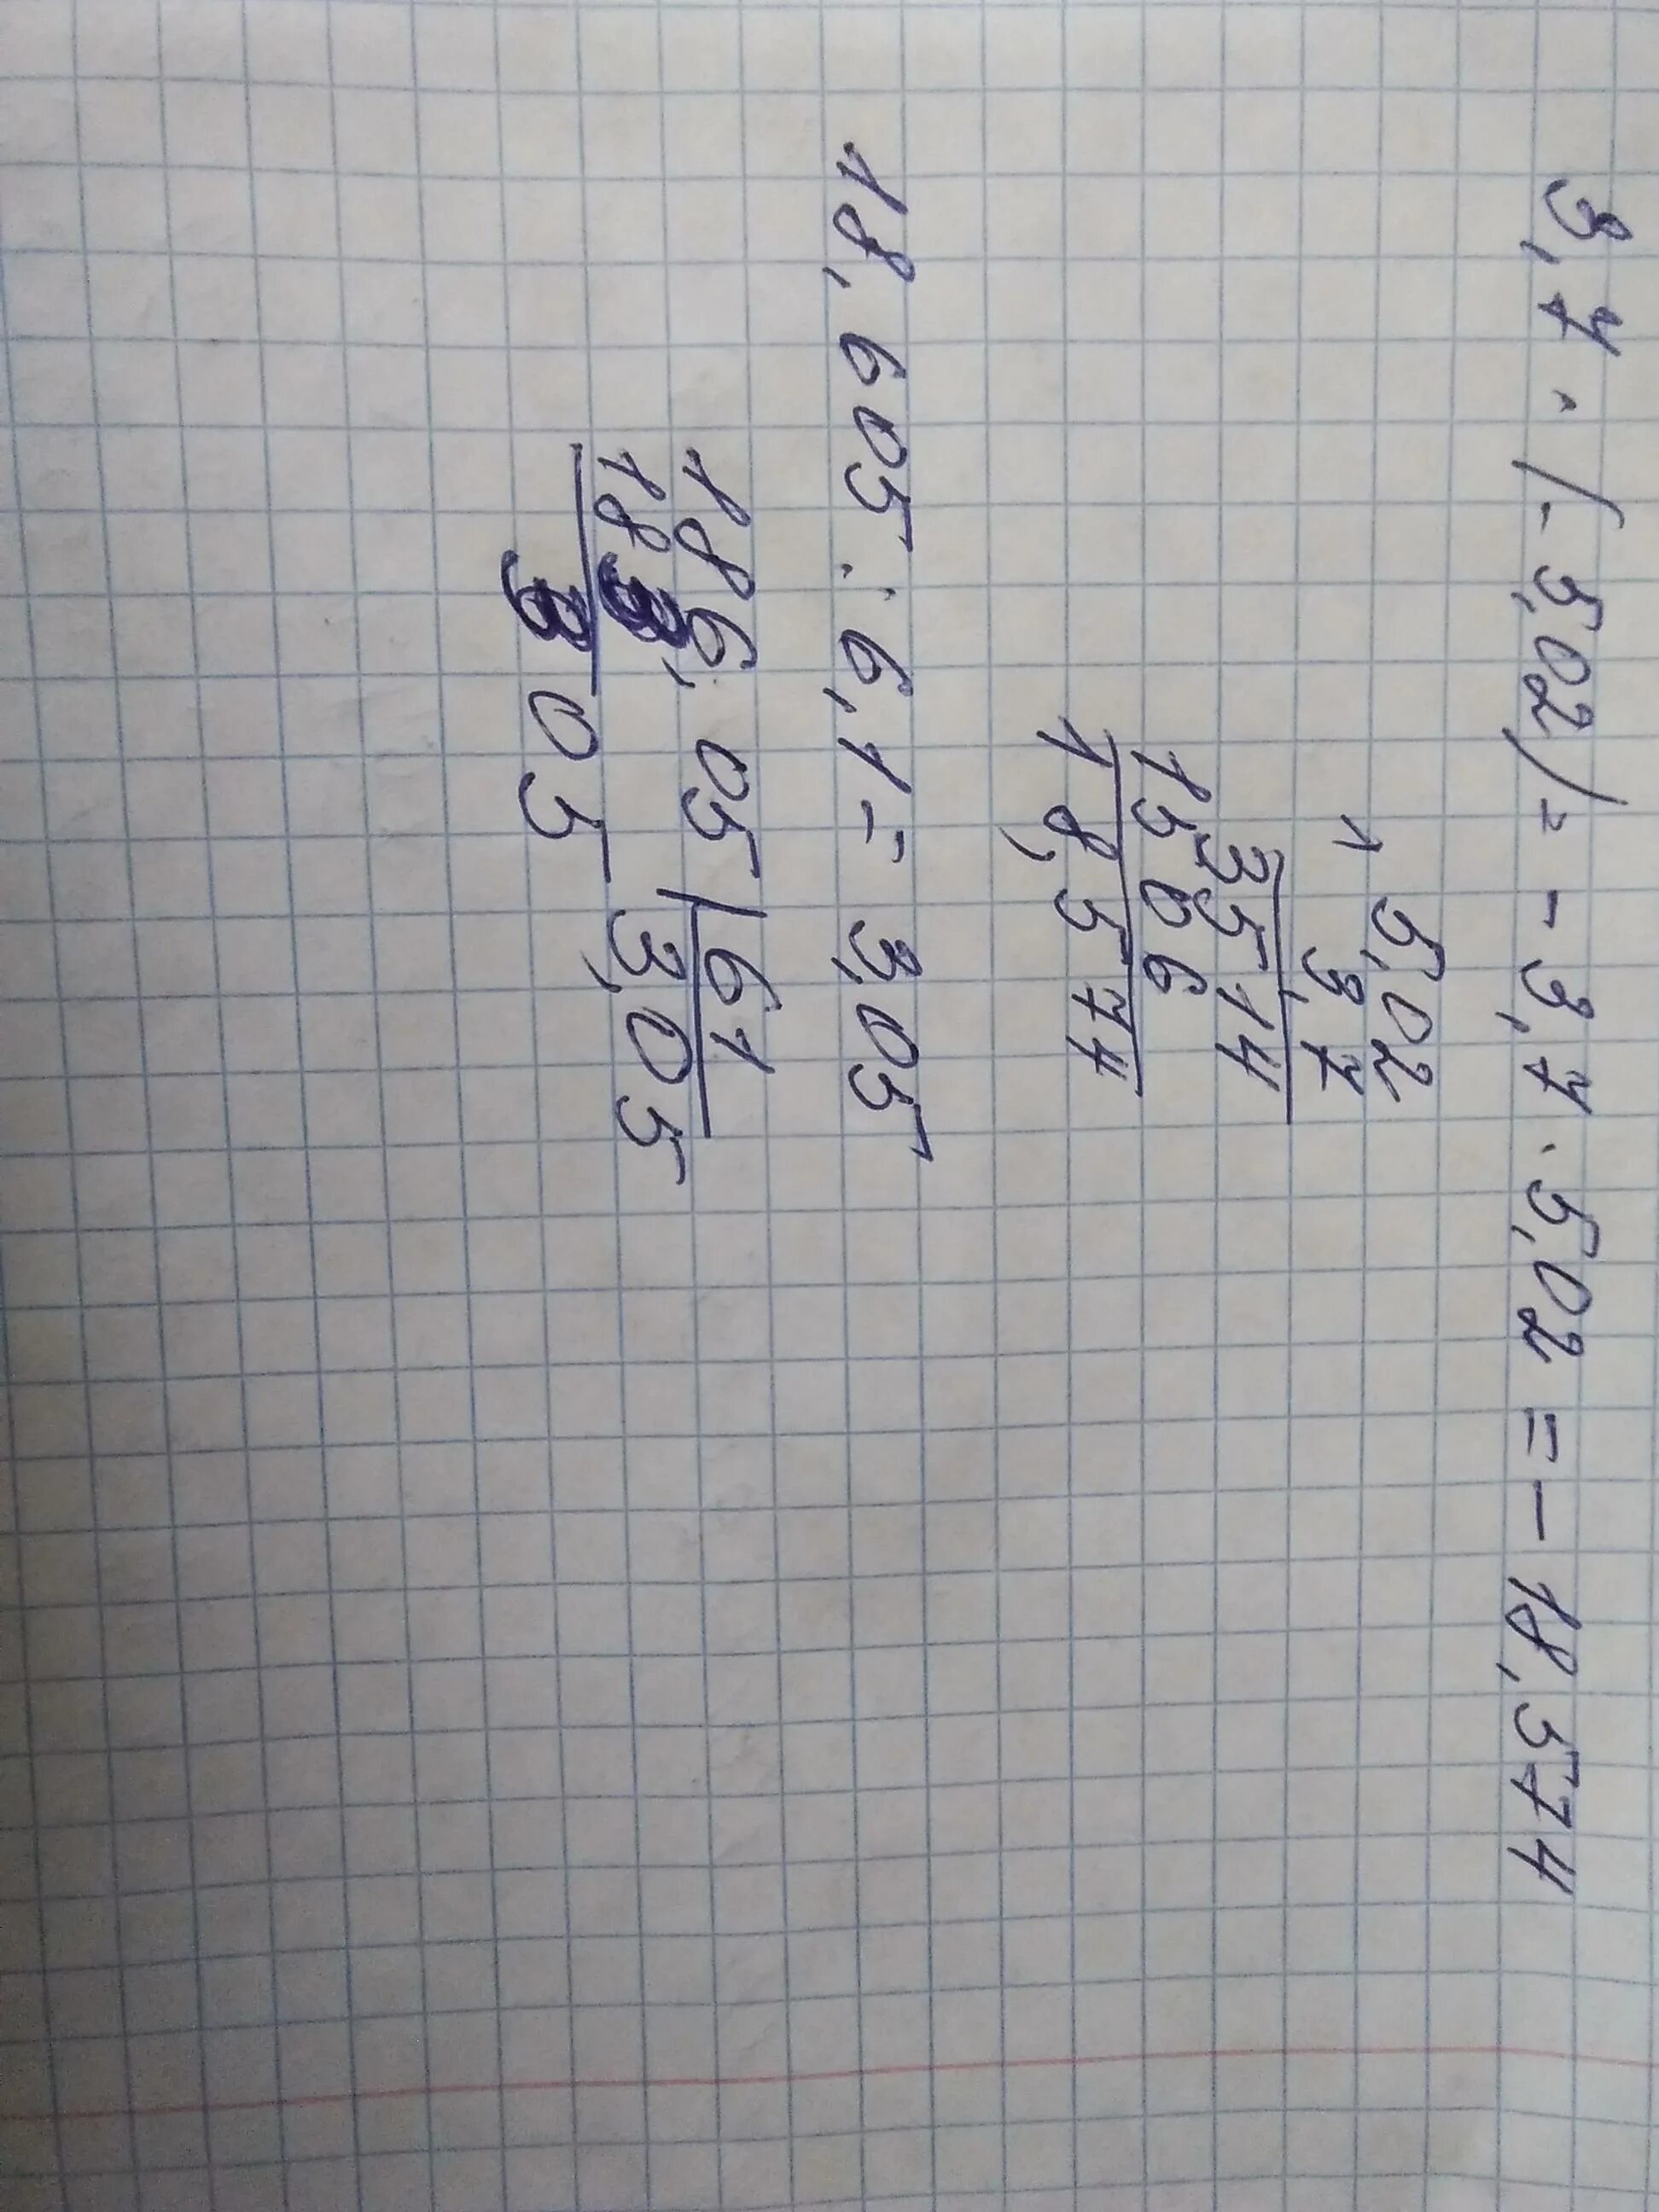 3,7 · (-5,02) = -3,7 · 5,02 = -18,574
5,02
1 3,7
35,14
1566
18,574
18,605 : 6,1 = 3,05
186,05 | 61
183 3,05
305